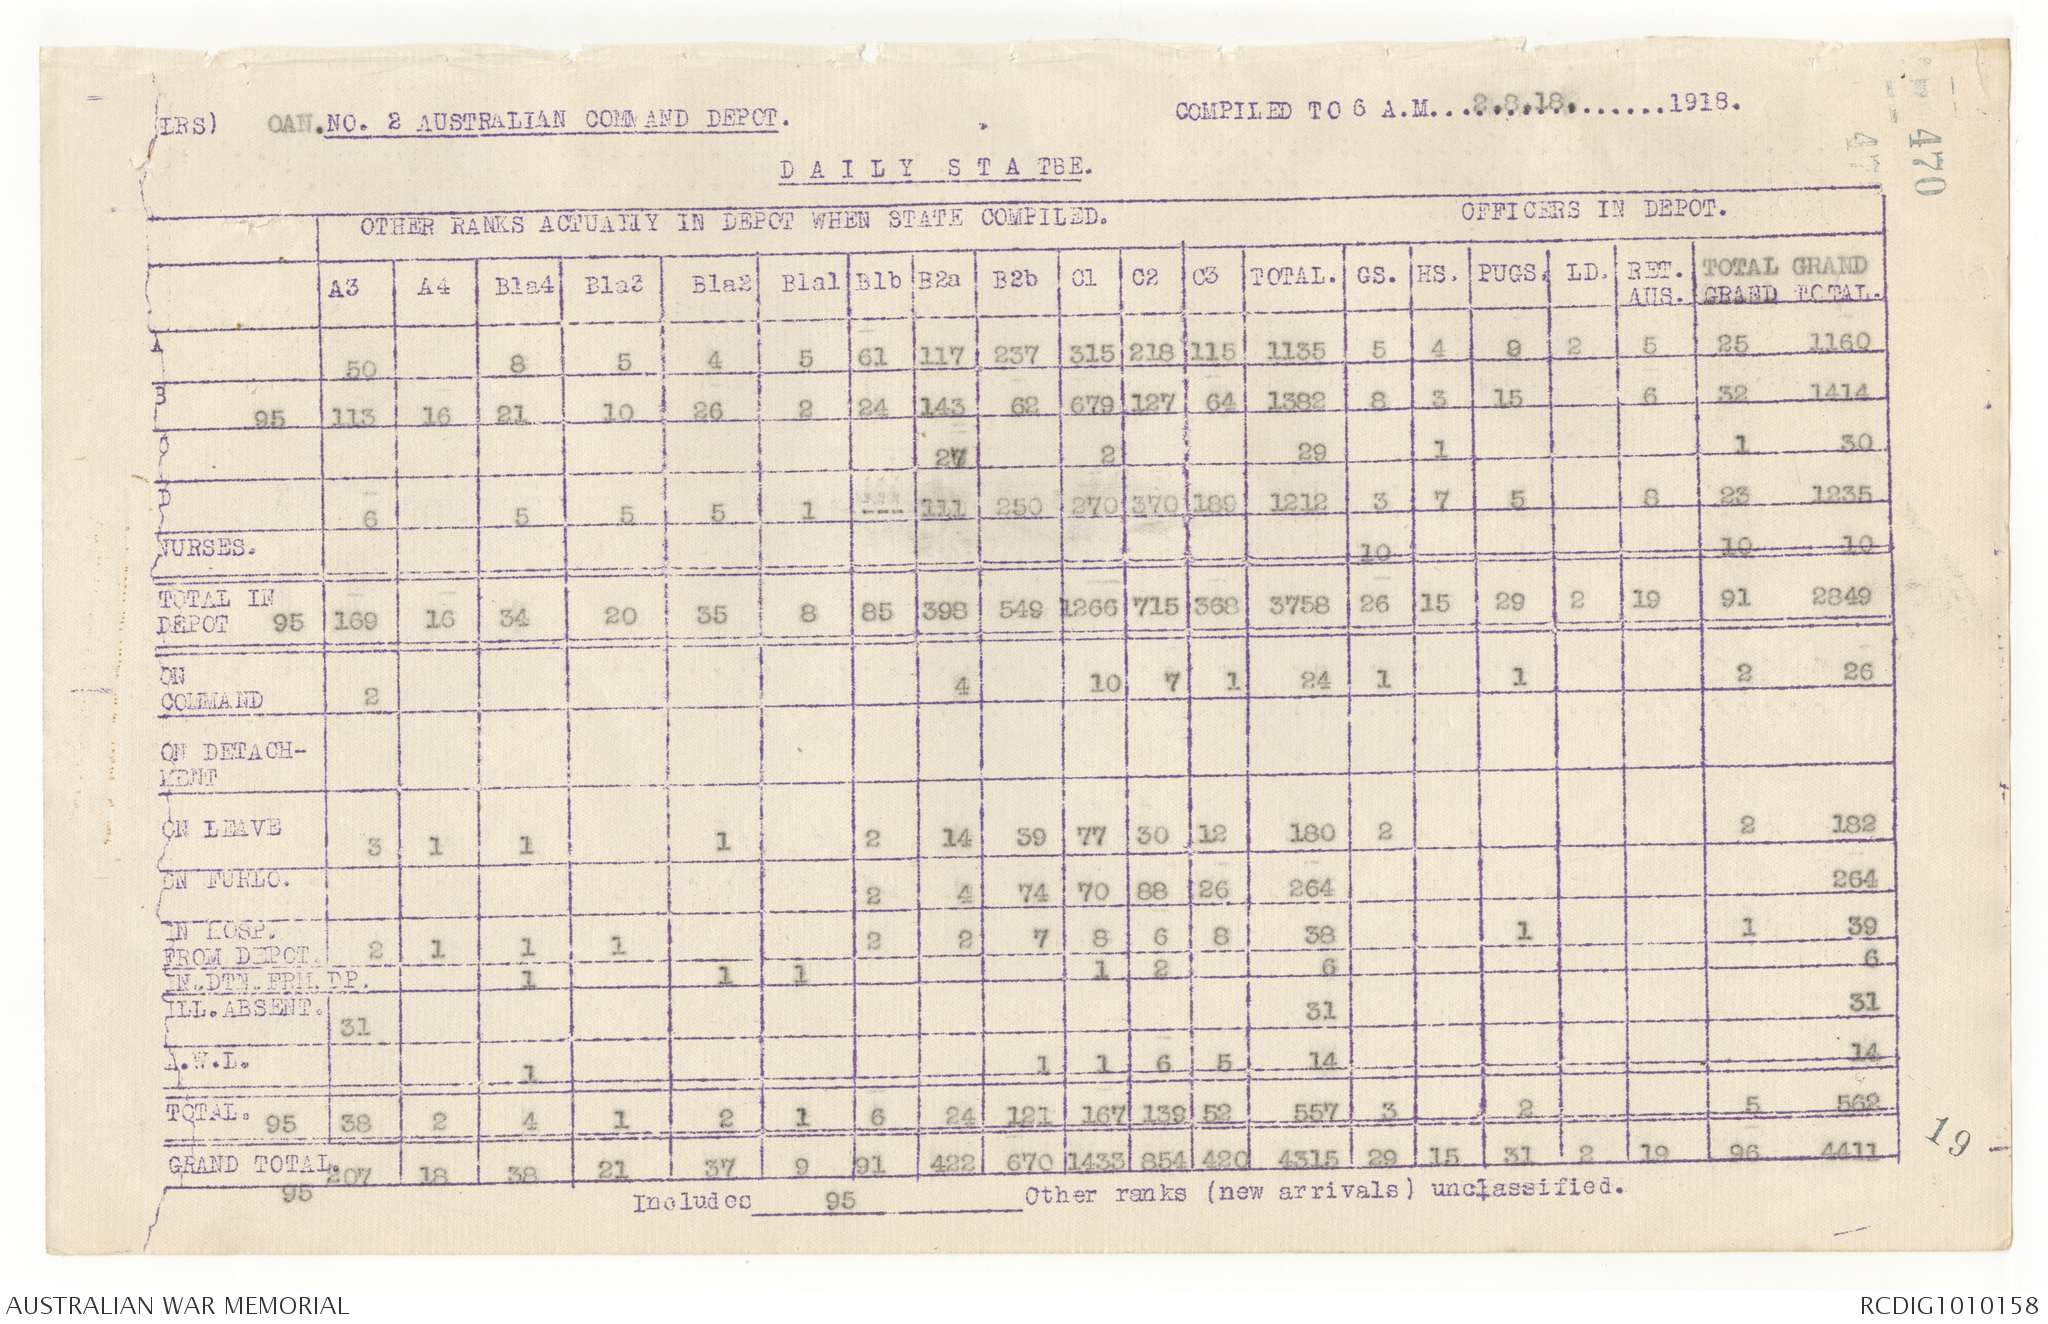 LRS) OAN. NO. 2 AUSTRALIAN COMMAND DEPOT. COMPILED TO 6 A.M....2.8.18........1918.
470
47
D A I L Y S T A TBE.
OTHER RANKS ACTUALLY IN DEPOT WHEN STATE COMPILED. OFFICERS IN DEPOT.
A3 A4 B1a4 B1a3 B1a2 B1a1 B1b B2a B2b C1 C2 C3 TOTAL. GS. HS. PUGS. LD. RET. AUS. TOTAL GRAND
GRAND TOTAL.
A 50 8 5 4 5 61 117 237 315 218 115 1135 5 4 9 2 5 25 1160
B 95 113 16 21 10 26 2 24 143 62 679 127 64 1382 8 3 15 6 32 1414
C 27 2 29 1 1 30
D 6 5 5 5 1 --- 111 250 270 370 189 1212 3 7 5 8 23 1235
NURSES. 10 10 10
TOTAL IN
DEPOT 95 169 16 34 20 35 8 85 398 549 1266 715 368 3758 26 15 29 2 19 91 2849
ON
COMMAND 2 4 10 7 1 24 1 1 2 26
ON DETACH-
MENT
ON LEAVE 3 1 1 1 2 14 39 77 30 12 180 2 2 182
ON FURLO. 2 4 74 70 88 26 264 264
IN HOSP.
FROM DEPOT. 2 1 1 1 2 2 7 8 6 8 38 1 1 39
IN.DTN.FRM.DP. 1 1 1 1 2 6 6
ILL.ABSENT. 31 31 31
A.W.L. 1 1 1 6 5 14 14
TOTAL. 95 38 2 4 1 2 1 6 24 121 167 139 52 557 3 2 5 562
GRAND TOTAL. 95 207 18 38 21 37 9 91 422 670 1433 854 420 4315 29 15 31 2 19 96 4411
19
Includes 95 Other ranks (new arrivals) unclassified.
AUSTRALIAN WAR MEMORIAL RCDIG1010158